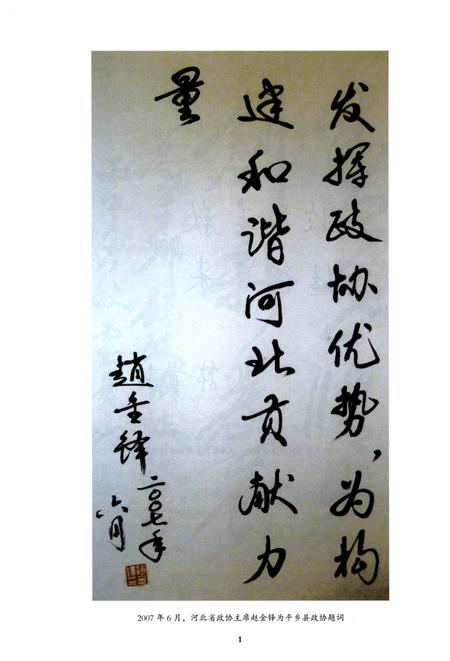 发挥政协优势，为构
建和谐河北贡献力
量
趙金铎
二〇〇七年
六月
2007 年 6 月，河北省政协主席赵金铎为平乡县政协题词
1